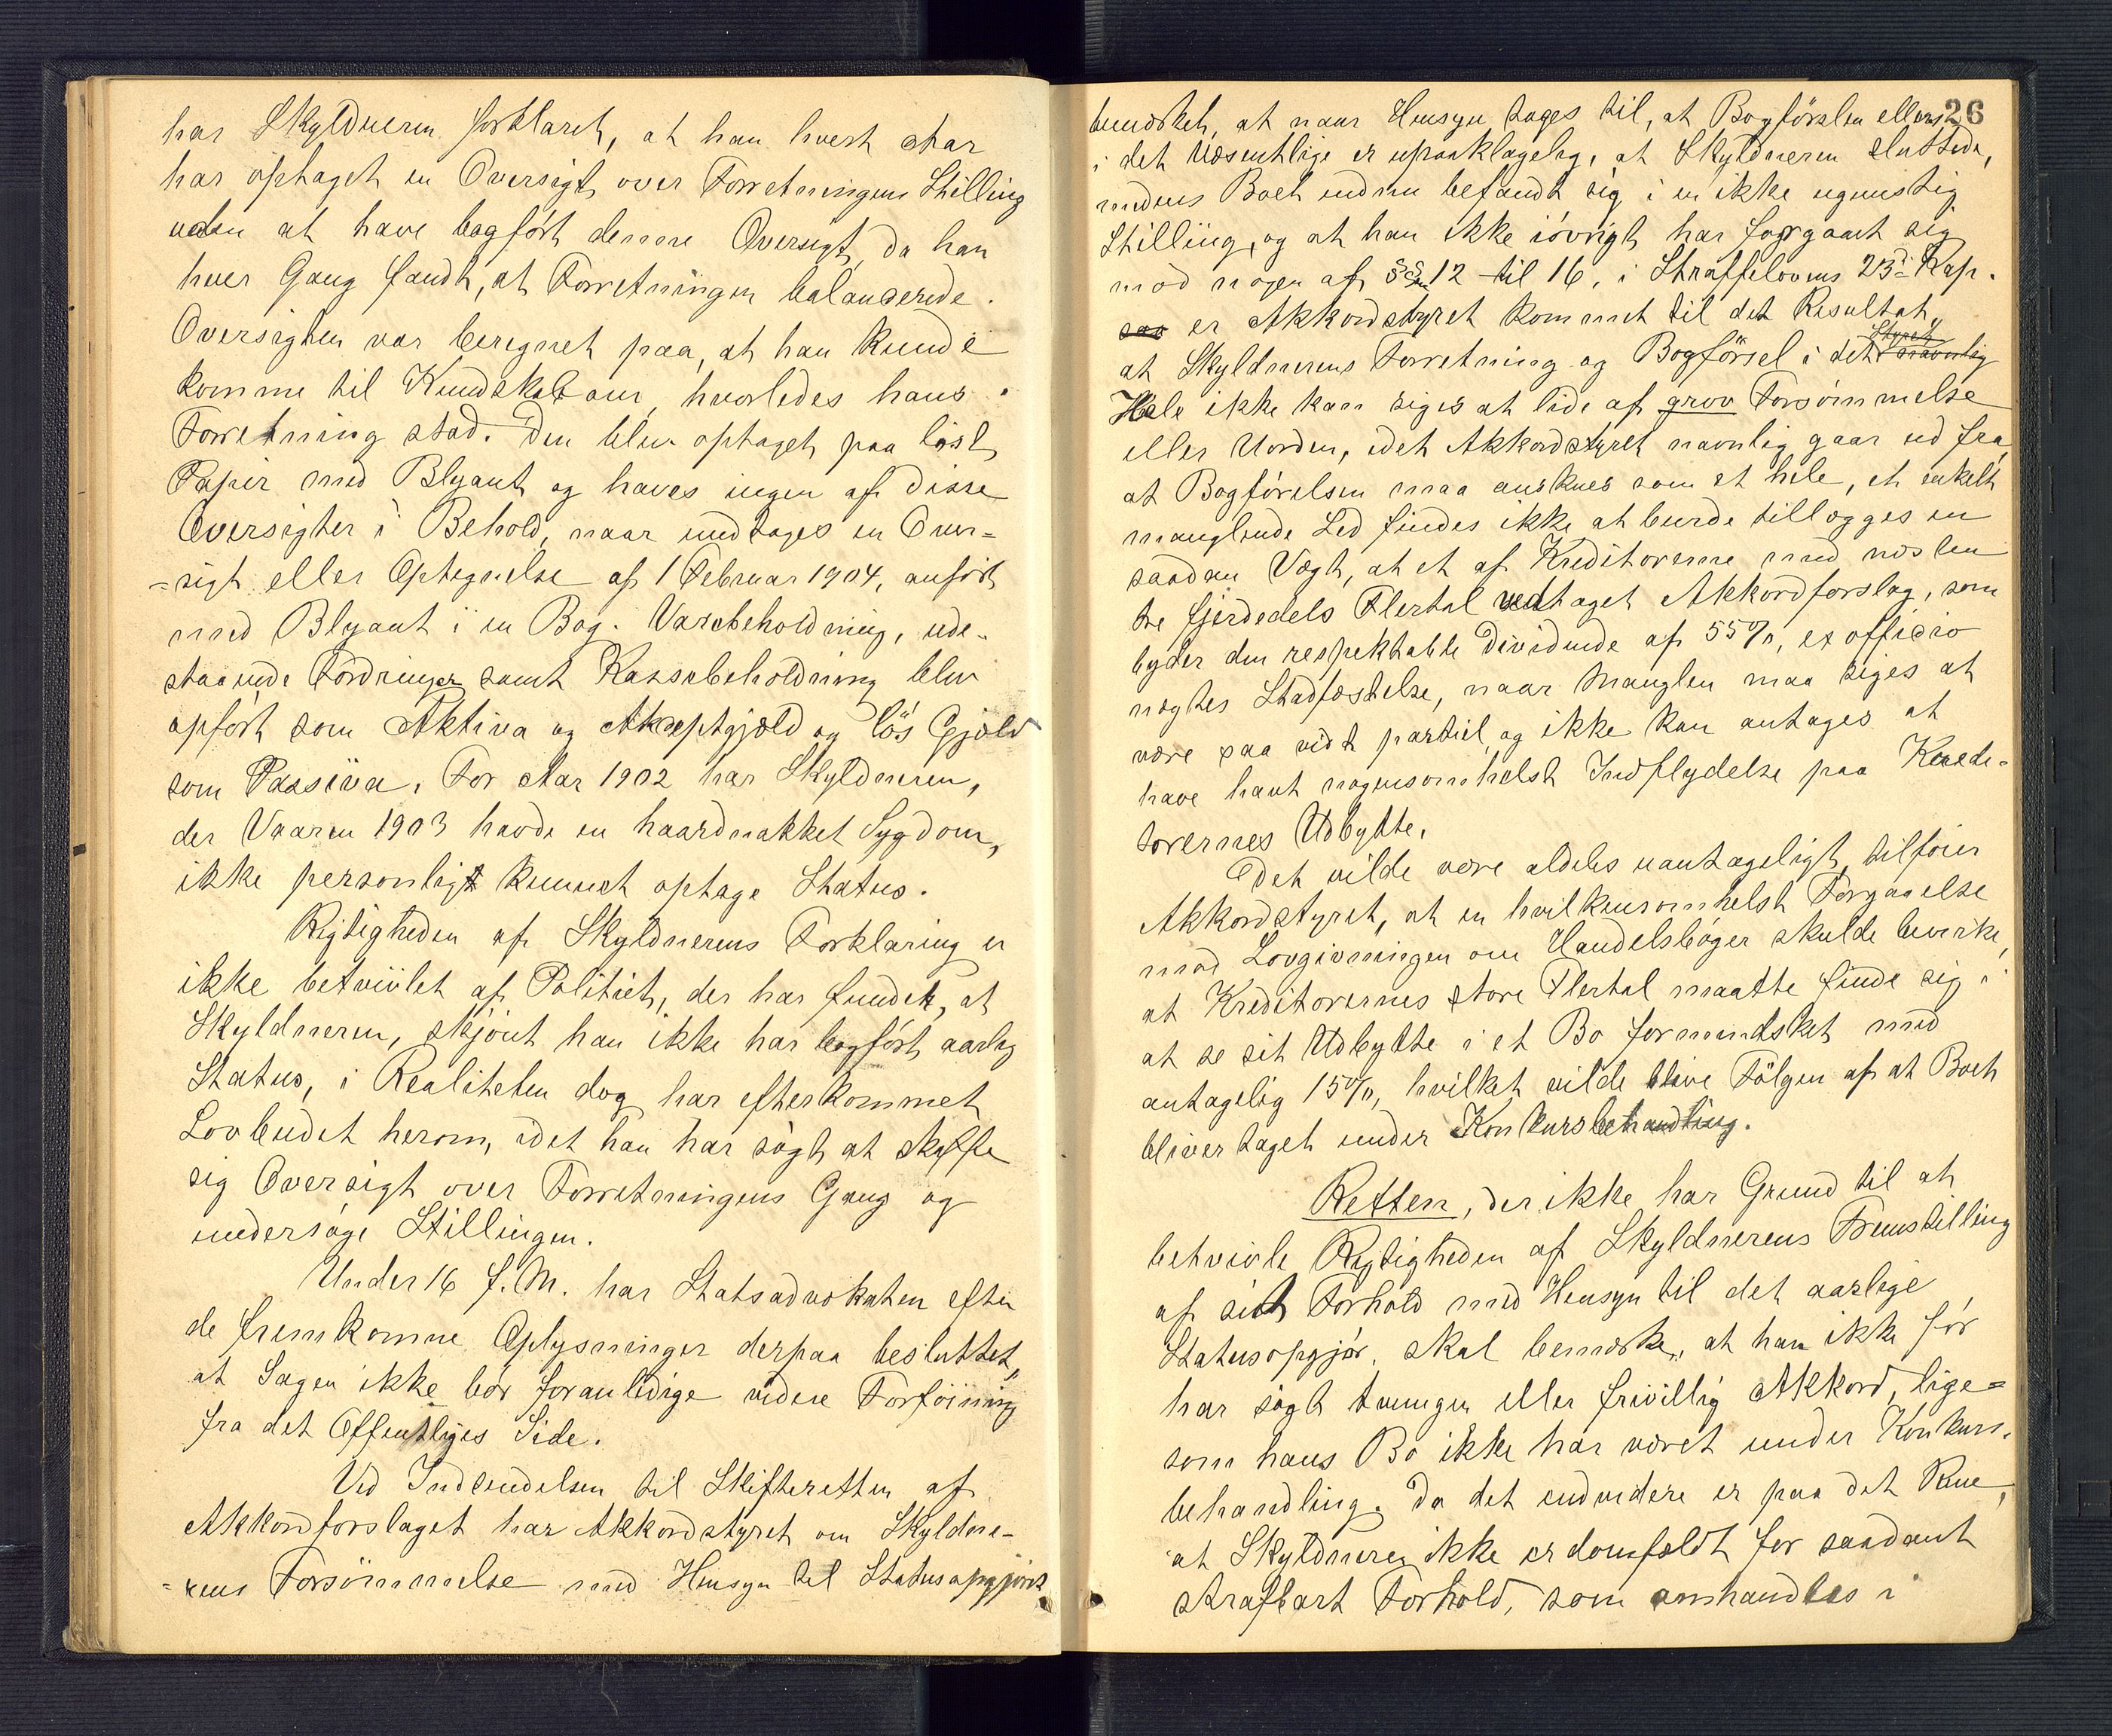 har Skyldneren forklaret, at han hvert Aar
har optaget en Oversigt over Forretningens Stilling
uden at have bogført denne Oversigt, da han
hver Gang fandt, at Forretningen balancerede.
Oversigten var beregnet paa, at han kunde
komme til Kundskab om, hvorledes hans
Forretning stod. Den blev optaget paa löst
Papir med Blyant og haves ingen af disse
Oversigter i Behold, naar undtages en Over=
=sigt eller Optegnelse af 1 Februar 1904, anført
med Blyant i en Bog. Varebeholdning, ude-
staaende Fordringer samt Kassebeholdning blev
opført som Aktiva og Akceptgjæld og lös Gjæld
som Passiva. For Aar 1902 har Skyldneren,
der Vaaren 1903 havde en haardnakket Sygdom,
ikke personligt kunnet optage Status.
Rigtigheden af Skyldnerens Forklaring er
ikke betvivlet af Politiet, der har fundet, at
Skyldneren, skjönt han ikke har bogført aarlig
Status, i Realiteten dog har efterkommet
Lovbudet herom, idet han har søgt at skaffe
sig Oversigt over Forretningens Gang og
undersøge Stillingen.
Under 16 f. M. har Statsadvokaten efter
de fremkomne Oplysninger derpaa besluttet,
at Sagen ikke bör foranledige videre Forföining
fra det Offentliges Side.
Ved Indsendelsen til Skifteretten af
Akkordforslaget har Akkordstyret om Skyldne-
=rens Forsömmelse med Hensyn til Statusopgjöret
26
bemærket, at naar Hensyn tages til, at Bogførslen ellers
i det Væsentlige er upaaklagelig, at Skyldneren sluttede,
medens Boet endnu befandt sig i en ikke ugunstig
Stilling, og at han ikke iövrigt har forgaaet sig
mod nogen af §§ 12 til 16, i Straffelovens 23de Kap.
saa er Akkordstyret kommet til det Resultat,
Styret
at Skyldnerens Forretning og Bogförsel i det navnlig
Hele ikke kan siges at lide af grov Forsömmelse
eller Uorden, idet Akkordstyret navnlig gaar ud fra,
at Bogførelsen maa anskues som et hele, et enkelt
manglende Led findes ikke at burde tillægges en
saadan Vægt, at et af Kreditorerne med næsten
tre fjerdedels Flertal vedtaget Akkordforslag, som
byder den respektable Dividende af 55%, ex officio
nægtes Stadfæstelse, naar Manglen maa siges at
være saa vidt partiel og ikke kan antages at
have havt nogensomhelst Indflydelse paa Kredi-
torernes Udbytte.
Det vilde være aldeles uantageligt, tilföier
Akkordstyret, at en hvilkensomhelst Forgaaelse
mod Lovgivningen om Handelsbøger skulde bevirke,
at Kreditorernes store Flertal maatte finde sig i
at se sit Udbytte i et Bo formindsket med
antagelig 15%, hvilket vilde blive Fölgen af at Boet
bliver taget under Konkursbehandling.
Retten, der ikke har Grund til at
betvivle Rigtigheden af Skyldnerens Fremstilling
af sit Forhold med Hensyn til det aarlige
Statusopgjør, skal bemærke, at han ikke før
har søgt tvungen eller frivillig Akkord, lige=
som hans Bo ikke har været under Konkurs-
behandling. Da det endvidere er paa det Rene,
at Skyldneren ikke er domfældt for saadant
strafbart Forhold, som omhandles i